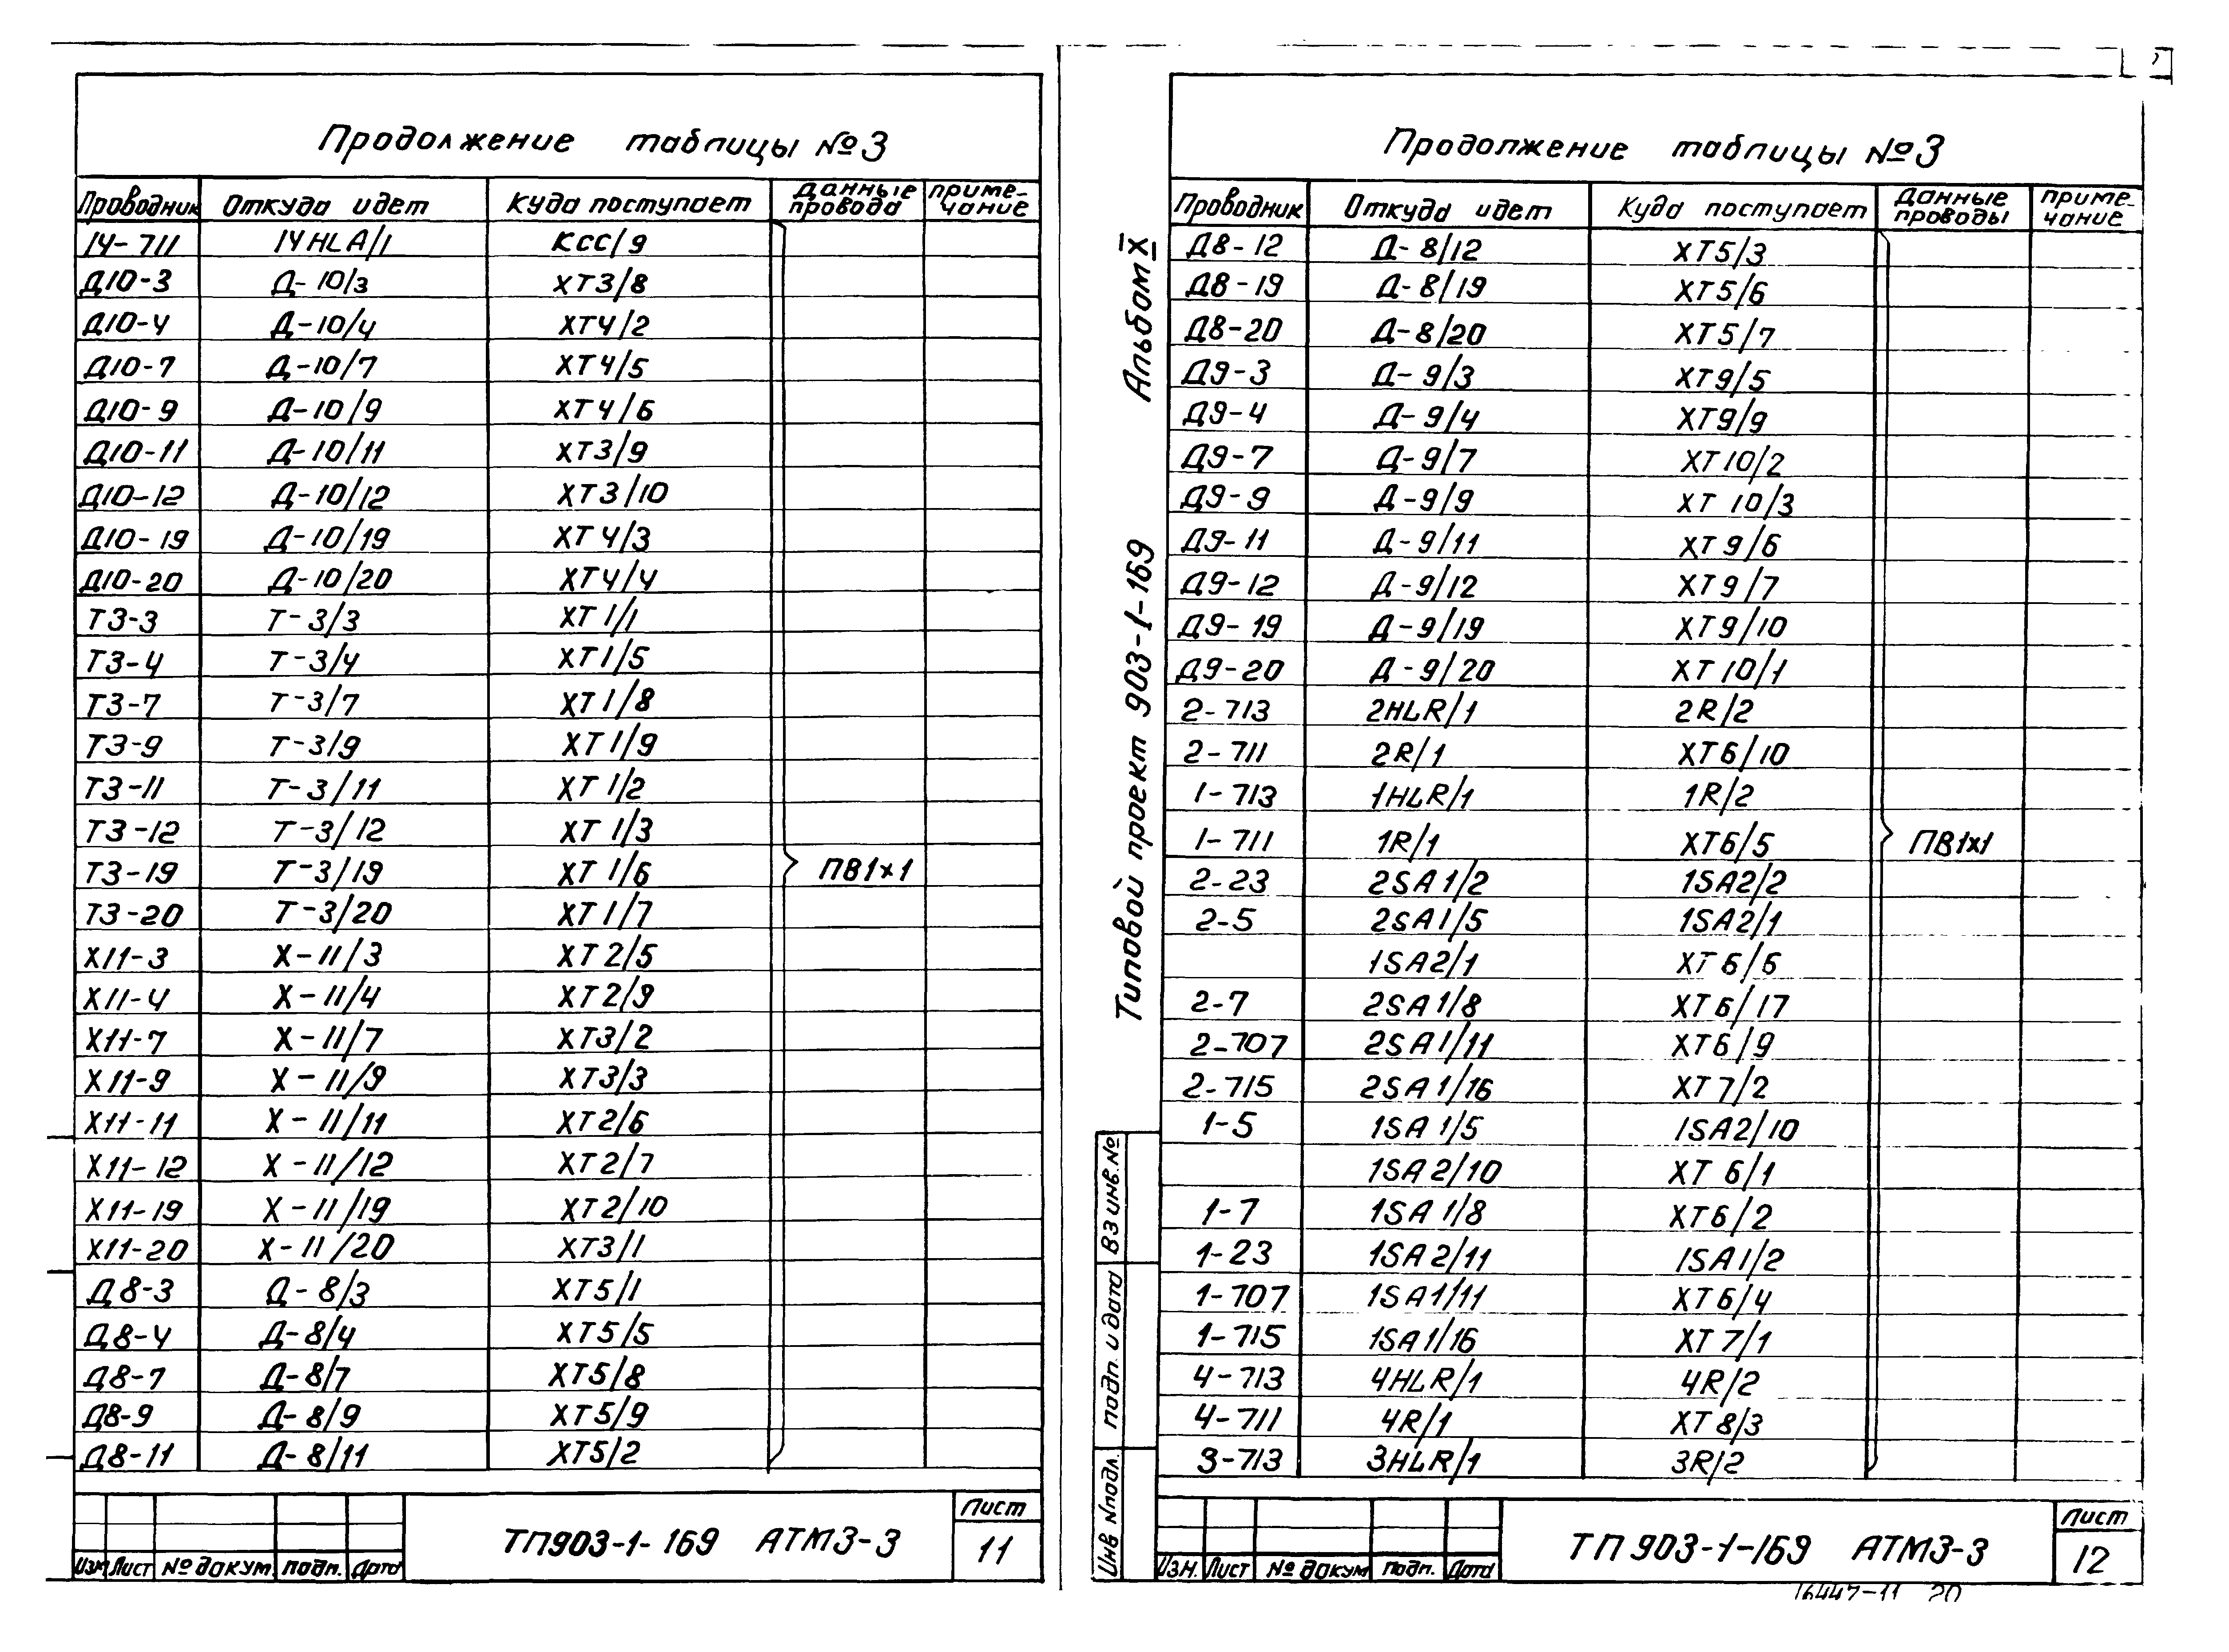 Продолжение таблицы №3
Проводник Откуда идет Куда поступает Данные провода Приме-чание
14-711 14HLA/1 КСС/9
Д10-3 Д-10/3 ХТ3/8
Д10-4 Д-10/4 ХТ4/2
Д10-7 Д-10/7 ХТ4/5
Д10-9 Д-10/9 ХТ4/6
Д10-11 Д-10/11 ХТ3/9
Д10-12 Д-10/12 ХТ3/10
Д10-19 Д-10/19 ХТ4/3
Д10-20 Д-10/20 ХТ4/4
Т3-3 Т-3/3 ХТ1/1
Т3-4 Т-3/4 ХТ1/5
Т3-7 Т-3/7 ХТ1/8
Т3-9 Т-3/9 ХТ1/9
Т3-11 Т-3/11 ХТ1/2
Т3-12 Т-3/12 ХТ1/3
Т3-19 Т-3/19 ХТ1/6 ПВ1х1
Т3-20 Т-3/20 ХТ1/7
Х11-3 Х-11/3 ХТ2/5
Х11-4 Х-11/4 ХТ2/9
Х11-7 Х-11/7 ХТ3/2
Х11-9 Х-11/9 ХТ3/3
Х11-11 Х-11/11 ХТ2/6
Х11-12 Х-11/12 ХТ2/7
Х11-19 Х-11/19 ХТ2/10
Х11-20 Х-11/20 ХТ3/1
Д8-3 Д-8/3 ХТ5/1
Д8-4 Д-8/4 ХТ5/5
Д8-7 Д-8/7 ХТ5/8
Д8-9 Д-8/9 ХТ5/9
Д8-11 Д-8/11 ХТ5/2
Изм Лист № докум подп. Дата
ТП903-1-169 АТМ3-3
Лист
11
Типовой проект 903-1-169 Альбом X
ВЗ инв.№
подп. и дата
Инв № подл.
Продолжение таблицы №3
Проводник Откуда идет Куда поступает Данные проводы Приме-чание
Д8-12 Д-8/12 ХТ5/3
Д8-19 Д-8/19 ХТ5/6
Д8-20 Д-8/20 ХТ5/7
Д9-3 Д-9/3 ХТ9/5
Д9-4 Д-9/4 ХТ9/9
Д9-7 Д-9/7 ХТ10/2
Д9-9 Д-9/9 ХТ 10/3
Д9-11 Д-9/11 ХТ9/6
Д9-12 Д-9/12 ХТ9/7
Д9-19 Д-9/19 ХТ9/10
Д9-20 Д-9/20 ХТ10/1
2-713 2HLR/1 2R/2
2-711 2R/1 ХТ6/10
1-713 1HLR/1 1R/2
1-711 1R/1 ХТ6/5 ПВ1х1
2-23 2SA1/2 1SA2/2
2-5 2SA1/5 1SA2/1
1SA2/1 ХТ6/6
2-7 2SA1/8 ХТ6/17
2-707 2SA1/11 ХТ6/9
2-715 2SA1/16 ХТ7/2
1-5 1SA1/5 1SA2/10
1SA2/10 ХТ 6/1
1-7 1SA1/8 ХТ6/2
1-23 1SA2/11 1SA1/2
1-707 1SA1/11 ХТ6/4
1-715 1SA1/16 ХТ7/1
4-713 4HLR/1 4R/2
4-711 4R/1 ХТ8/3
3-713 3HLR/1 3R/2
Изм. Лист № докум подп. Дата
ТП903-1-169 АТМ3-3
Лист
12
16447-11 20